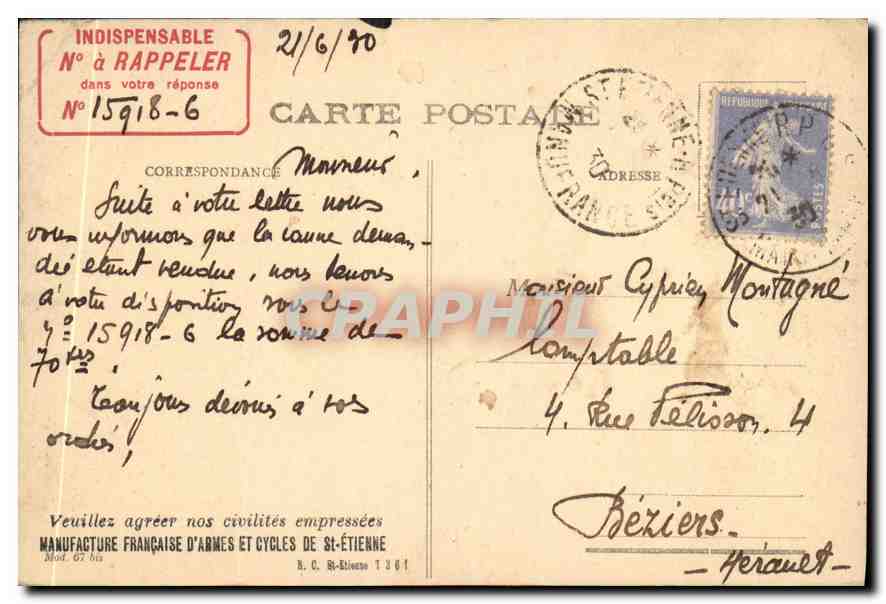 INDISPENSABLE
Nº à RAPPELER
dans votre réponse
Nº 15918-6
21/6/30
CARTE POSTALE
CORRESPONDANCE
ADRESSE
Monsieur,
Suite à votre lettre nous
vous informons que la canne deman-
dée étant vendue, nous tenons
à votre disposition sous le
Nº 15918-6 la somme de
70 frs.
Toujours dévoués à vos
ordres,
Veuillez agréer nos civilités empressées
MANUFACTURE FRANÇAISE D'ARMES ET CYCLES DE St-ÉTIENNE
Mod. 67 bis
R. C. St-Etienne 1361
Monsieur Cyprien Montagné
Comptable
4, Rue Pélisson, 4
Béziers-
-Hérault-
REPUBLIQUE FRANÇAISE
POSTES
CRAPHIL